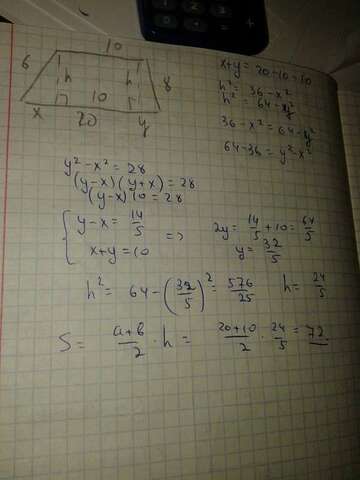 10
6
h
h
8
10
x
20
y
x+y = 20-10 = 10
h² = 36 - x²
h² = 64 - y²
36 - x² = 64 - y²
64 - 36 = y² - x²
y² - x² = 28
(y-x)(y+x) = 28
(y-x) 10 = 28
{ y-x = 14/5 => 2y = 14/5 + 10 = 64/5
x+y = 10 y = 32/5
h² = 64 - (32/5)² = 576/25 h = 24/5
S = a+b/2 · h = 20+10/2 · 24/5 = 72